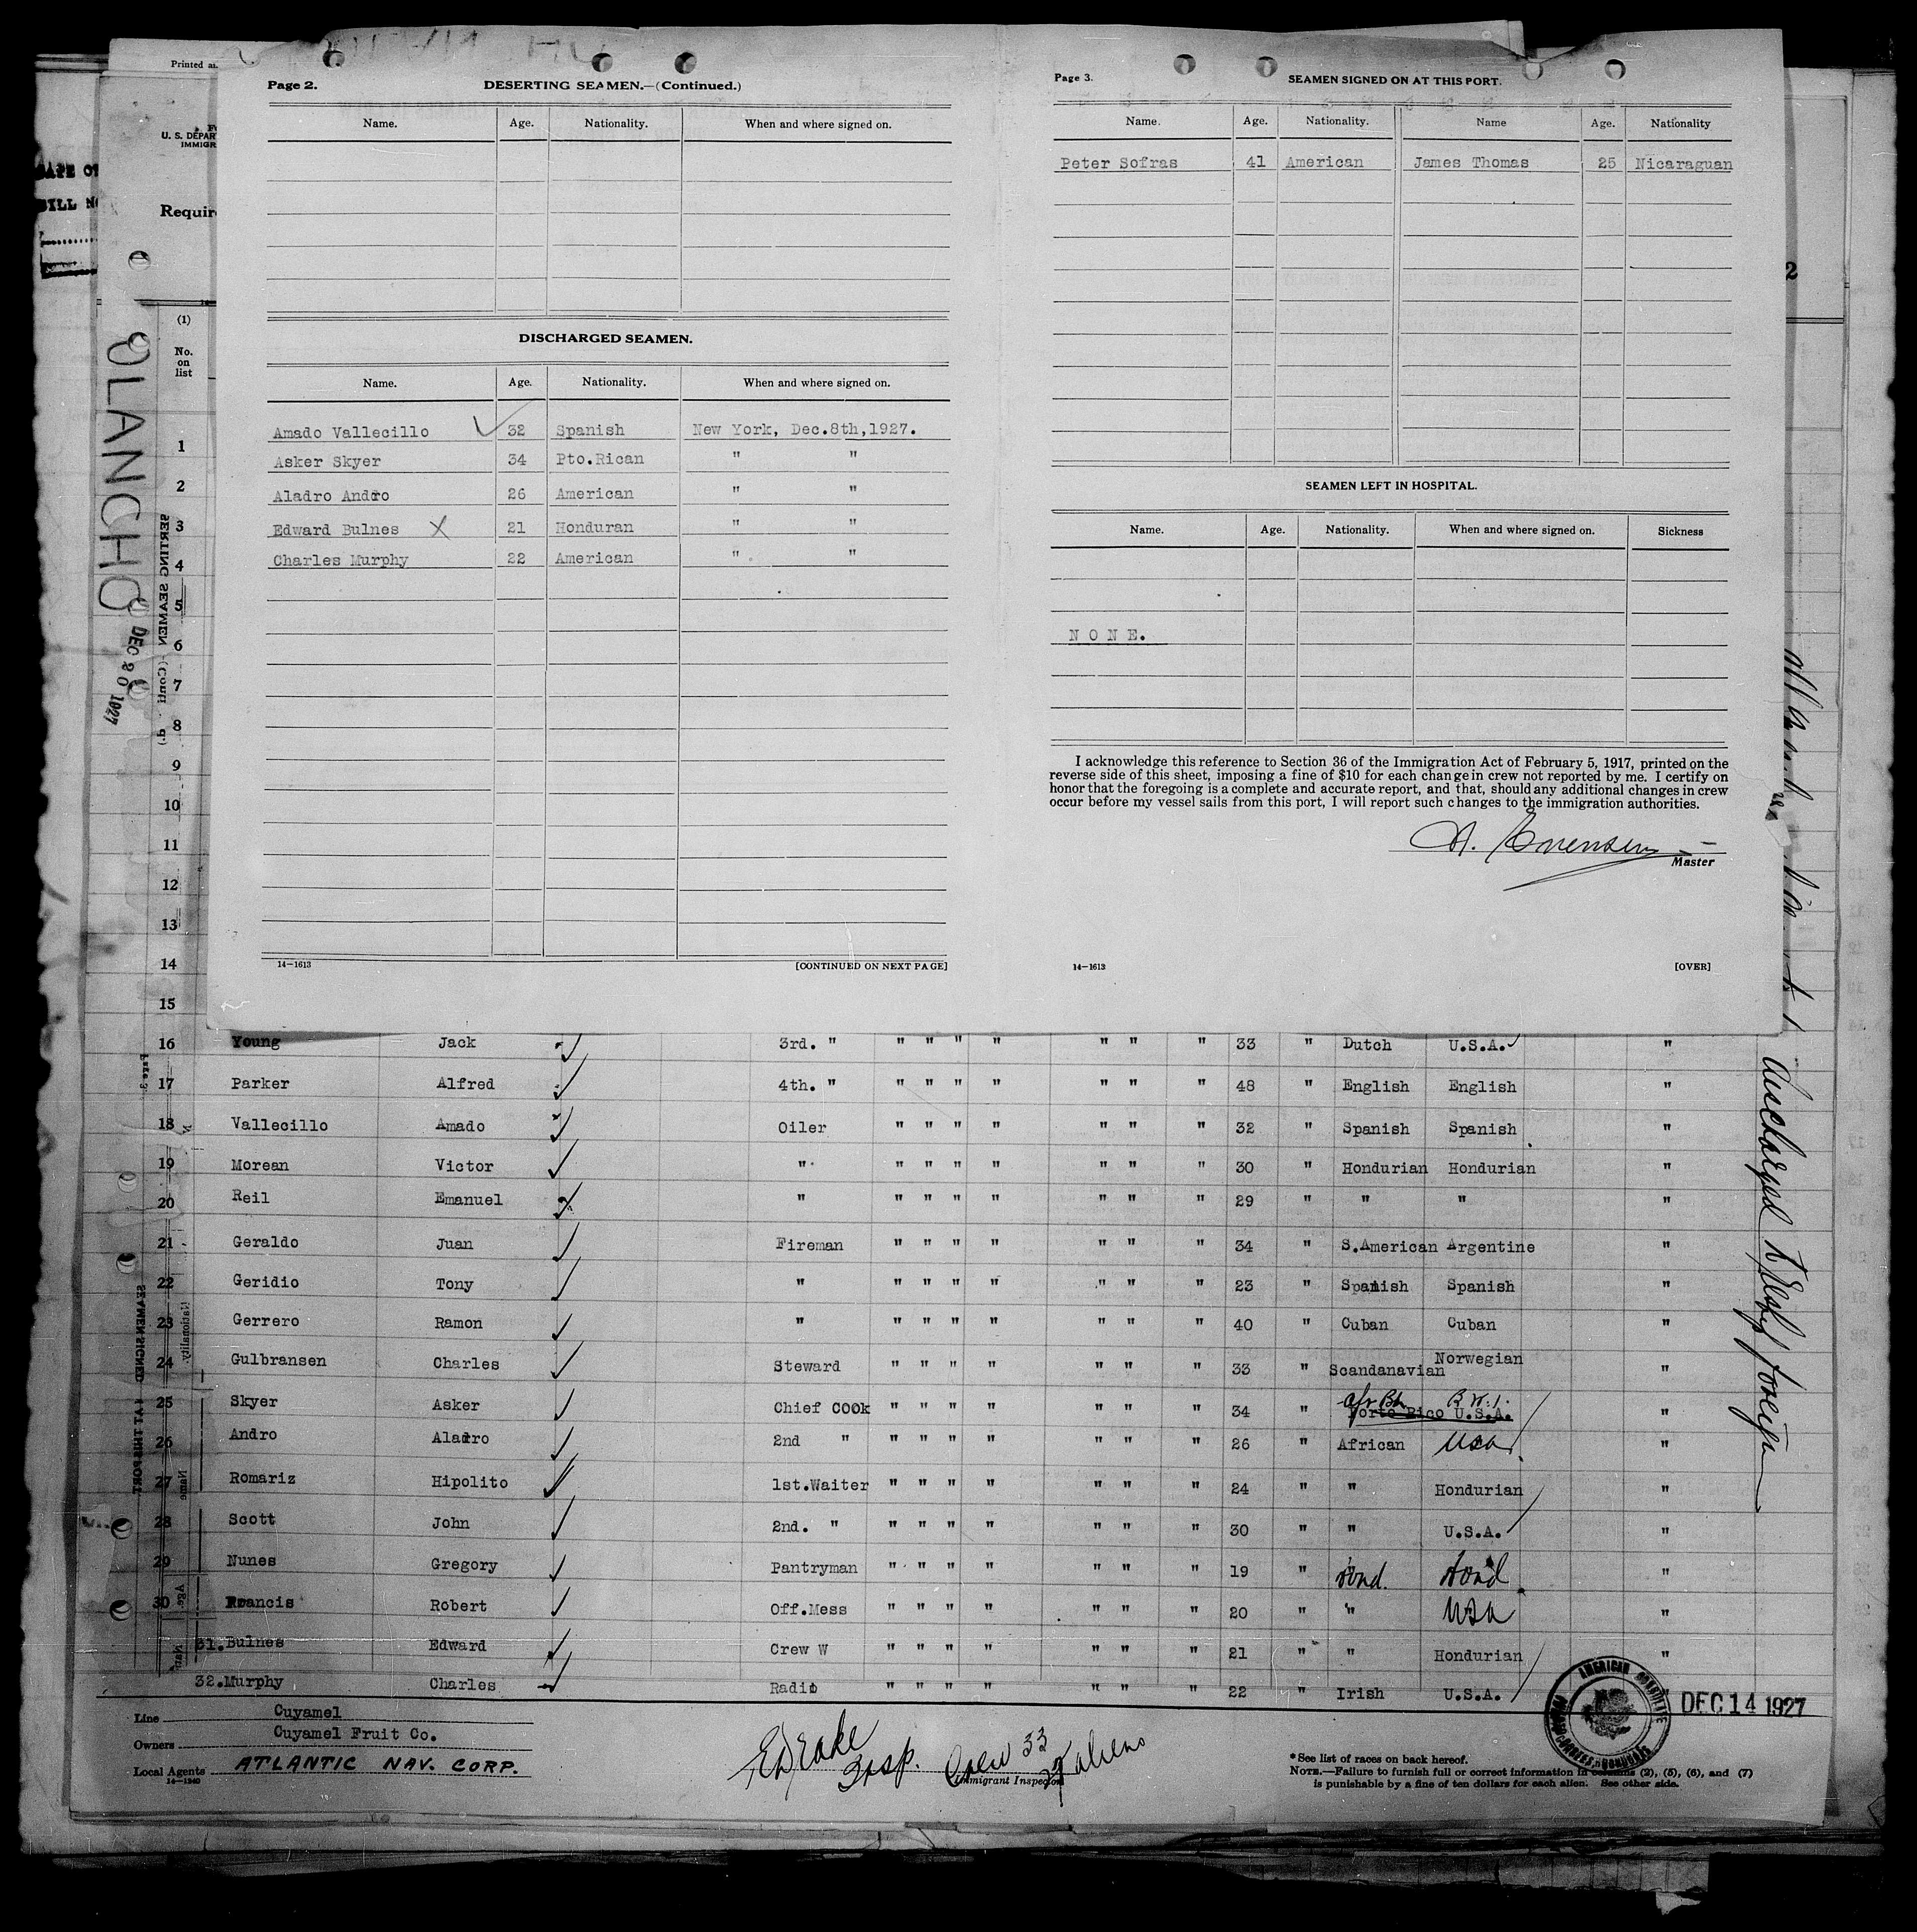 Page 2. DESERTING SEAMEN.—(Continued.)
Name. Age. Nationality. When and where signed on.
DISCHARGED SEAMEN.
Name. Age. Nationality. When and where signed on.
Amado Vallecillo 32 Spanish New York, Dec.8th,1927.
Asker Skyer 34 Pto.Rican " "
Aladro Andro 26 American " "
Edward Bulnes X 21 Honduran " "
Charles Murphy 22 American " "
14—1613 [CONTINUED ON NEXT PAGE]
Page 3. SEAMEN SIGNED ON AT THIS PORT.
Name. Age. Nationality. Name Age. Nationality
Peter Sofras 41 American James Thomas 25 Nicaraguan
SEAMEN LEFT IN HOSPITAL.
Name. Age. Nationality. When and where signed on. Sickness
N O N E.
I acknowledge this reference to Section 36 of the Immigration Act of February 5, 1917, printed on the
reverse side of this sheet, imposing a fine of $10 for each change in crew not reported by me. I certify on
honor that the foregoing is a complete and accurate report, and that, should any additional changes in crew
occur before my vessel sails from this port, I will report such changes to the immigration authorities.
Master
14—1613 [OVER]
Printed
U. S. DEPAR
IMMIGR
BILL
Requir
(1)
No.
on
list
OLANCHO
DEC 20 1927
1
2
3
4
5
6
7
8
9
10
11
12
13
14
15
16 Young Jack 3rd. " " " " " " " " 33 " Dutch U.S.A. "
17 Parker Alfred 4th. " " " " " " " " 48 " English English "
18 Vallecillo Amado Oiler " " " " " " " 32 " Spanish Spanish "
19 Morean Victor " " " " " " " " 30 " Hondurian Hondurian "
20 Reil Emanuel " " " " " " " " 29 " " " "
21 Geraldo Juan Fireman " " " " " " " 34 " S.American Argentine "
22 Geridio Tony " " " " " " " " 23 " Spanish Spanish "
23 Gerrero Ramon " " " " " " " " 40 " Cuban Cuban "
24 Gulbransen Charles Steward " " " " " " " 33 " Scandanavian Norwegian "
25 Skyer Asker Chief COOk " " " " " " " 34 " Afr Blk B.W.I. Porto Rico U.S.A. "
26 Andro Aladro 2nd " " " " " " " " 26 " African USA "
27 Romariz Hipolito 1st.Waiter " " " " " " " 24 " " Hondurian "
28 Scott John 2nd. " " " " " " " " 30 " " U.S.A. "
29 Nunes Gregory Pantryman " " " " " " " 19 " Hond. Hond "
30 Francis Robert Off.Mess " " " " " " " 20 " " USA "
31. Bulnes Edward Crew W " " " " " " " 21 " " Hondurian "
32. Murphy Charles Radio " " " " " " " 22 " Irish U.S.A. "
discharged to reship foreign
Line Cuyamel
Owners Cuyamel Fruit Co.
Local Agents ATLANTIC NAV. CORP.
14—1240
EDrake
Insp.
Crew 33
aliens
Immigrant Inspector
*See list of races on back hereof.
NOTE.—Failure to furnish full or correct information in columns (2), (5), (6), and (7)
is punishable by a fine of ten dollars for each alien. See other side.
AMERICAN CONSULATE
DEC 14 1927